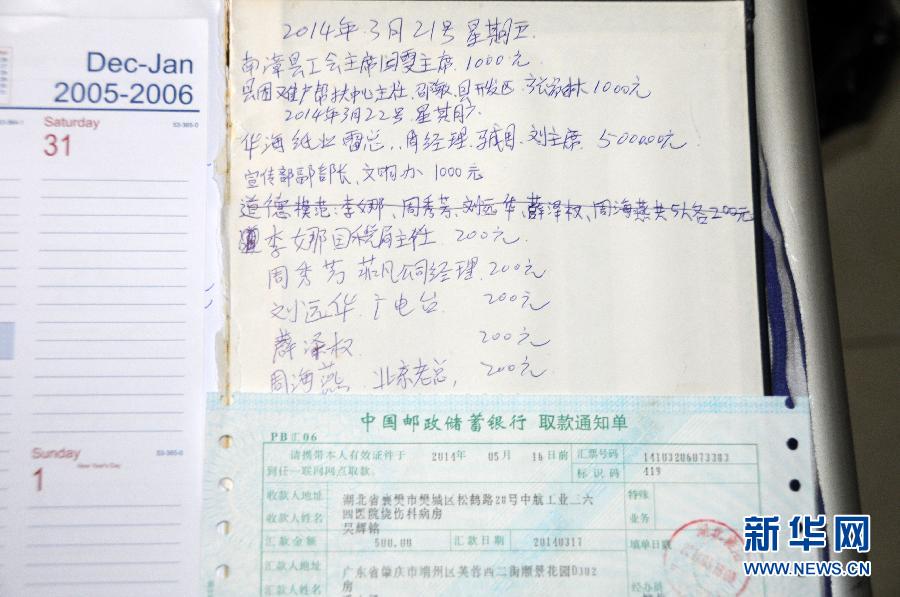 Dec-Jan
2005-2006
Saturday
53-365-0
31
Sunday
53-365-0
New Year's Day
1
2014年3月21号星期五
南漳县工会主席闫雯主席.1000元
县困难户帮扶中心主任.邵敏.县开发区.张 林1000元
2014年3月22号.星期六
华海纸业雷总、周经理.刘主席.500000元
宣传部副部长、文明办1000元
道德模范:李女娜、周秀芳、刘远华、薛泽权、周海燕共5人各200元
李女娜国税局主任.200元.
周秀芳 公司经理.200元
刘远华.广电台.200元
薛泽权 200元
周海燕.北京老总,200元
中国邮政储蓄银行 取款通知单
PB汇06
请携带本人有效证件于 2014年 05月 16日前
到任一联网网点取款。
汇票号码 14103206073303
标识码 419
收款人地址 湖北省襄樊市樊城区松鹤路28号中航工业三六
四医院烧伤科病房
收款人姓名 吴辉铭
特殊
业务
汇款金额 500.00 汇款日期 20140317 填单日戳
汇款人地址 广东省肇庆市端州区芙蓉西二街颐景花园D302
房
经办员
新华网
WWW.NEWS.CN